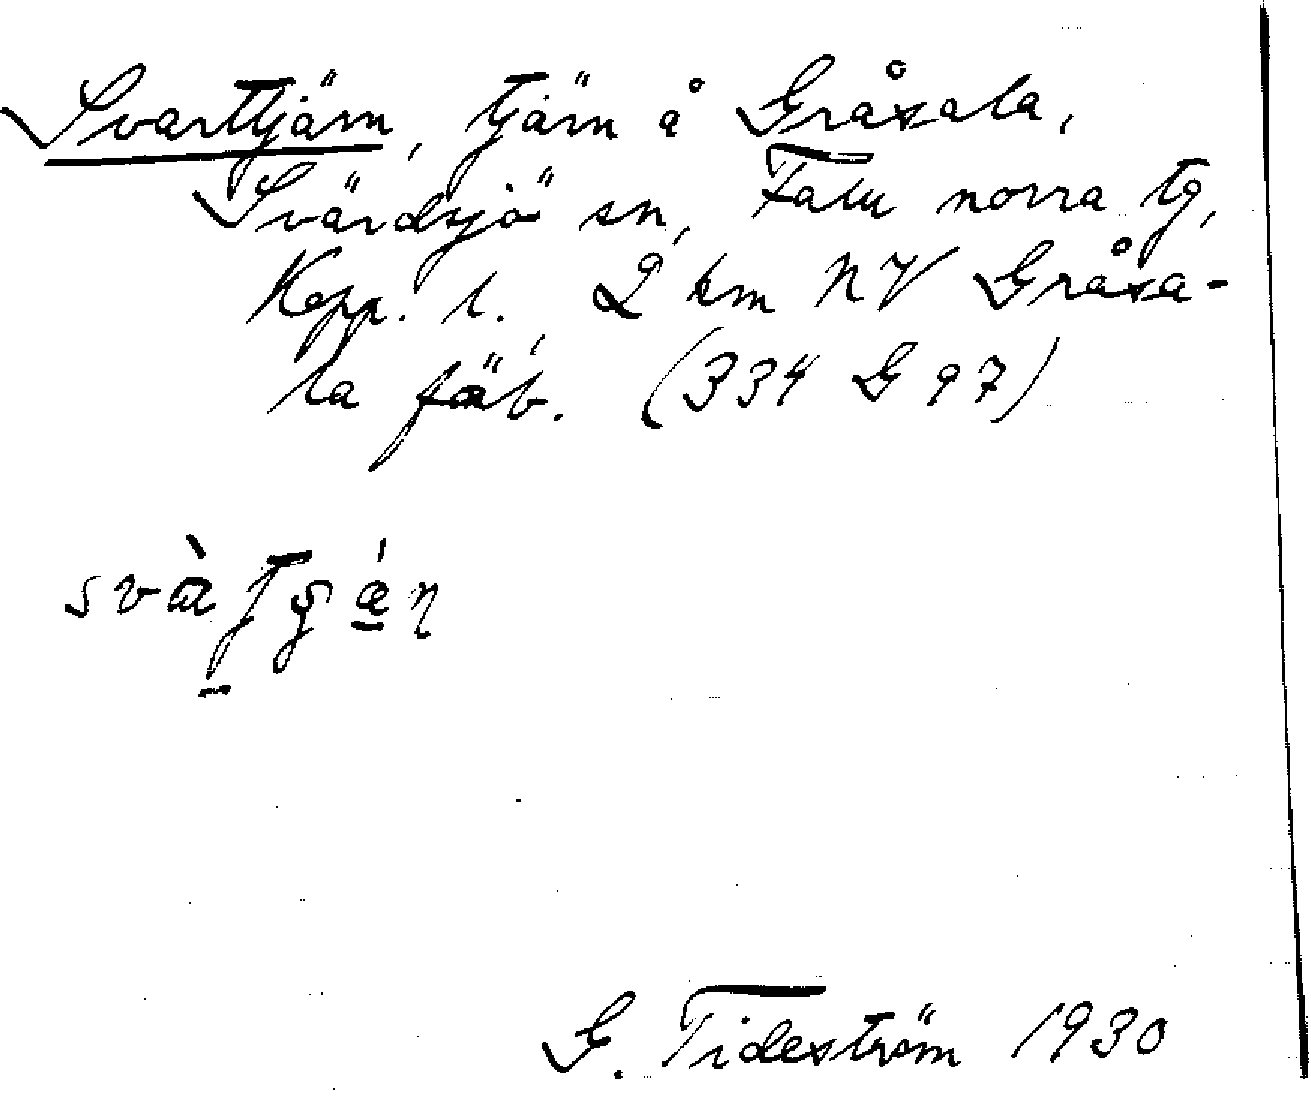 Svarttjärn, tjärn å Gråsala,
Svärdsjö sn, Falu norra tg,
Kopp. l. 2 km NV Gråsa-
la fäb. (334 G 97)
G. Tideström 1930